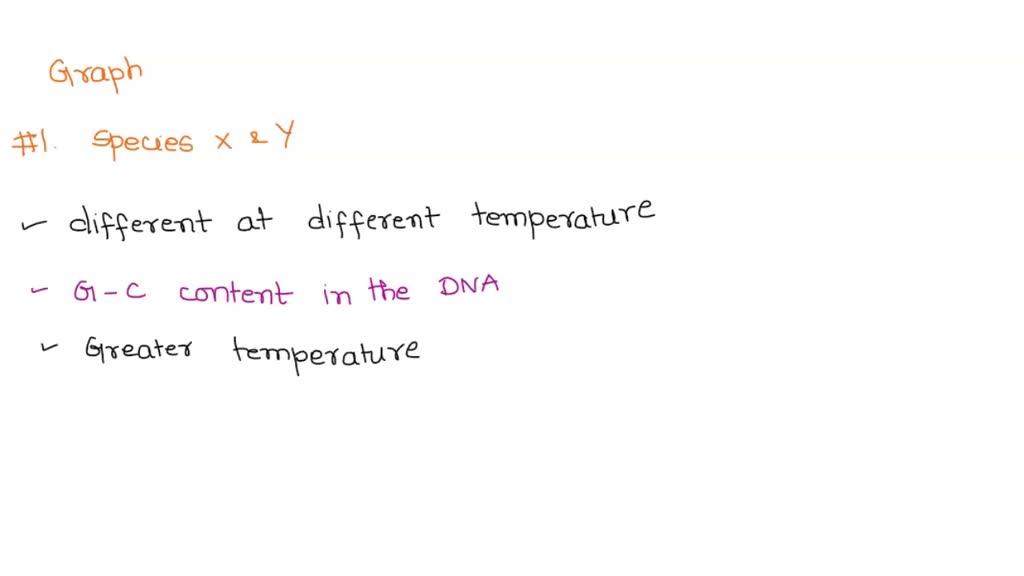 Graph
#1. Species X & Y
✓ different at different temperature
- G-C content in the DNA
✓ Greater temperature